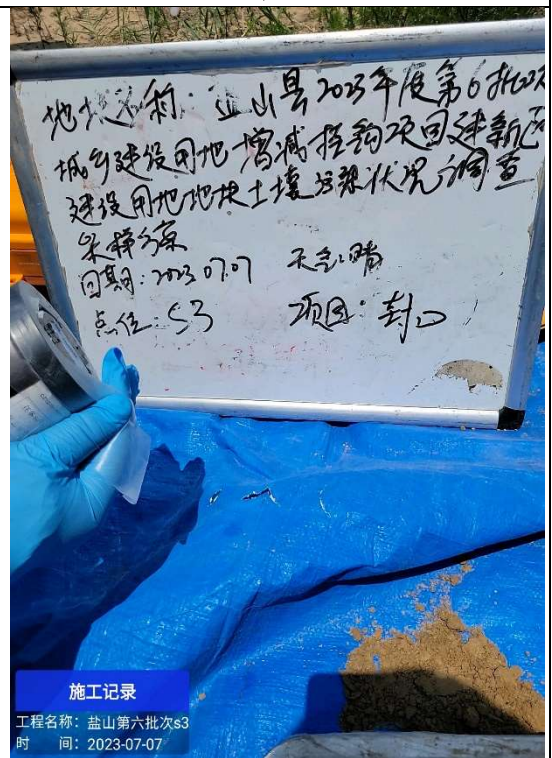 地块名称：盐山县2023年度第6批次
城乡建设用地增减挂钩项目建新区
建设用地地块土壤污染状况调查
采样方案
日期：2023.07.07 天气：晴
点位：S3 项目：封口
施工记录
工程名称：盐山第六批次s3
时 间：2023-07-07